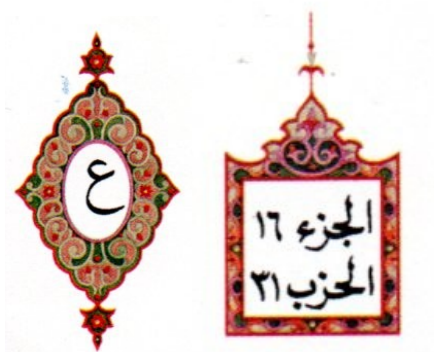 ع
الجزء ١٦
الحزب ٣١